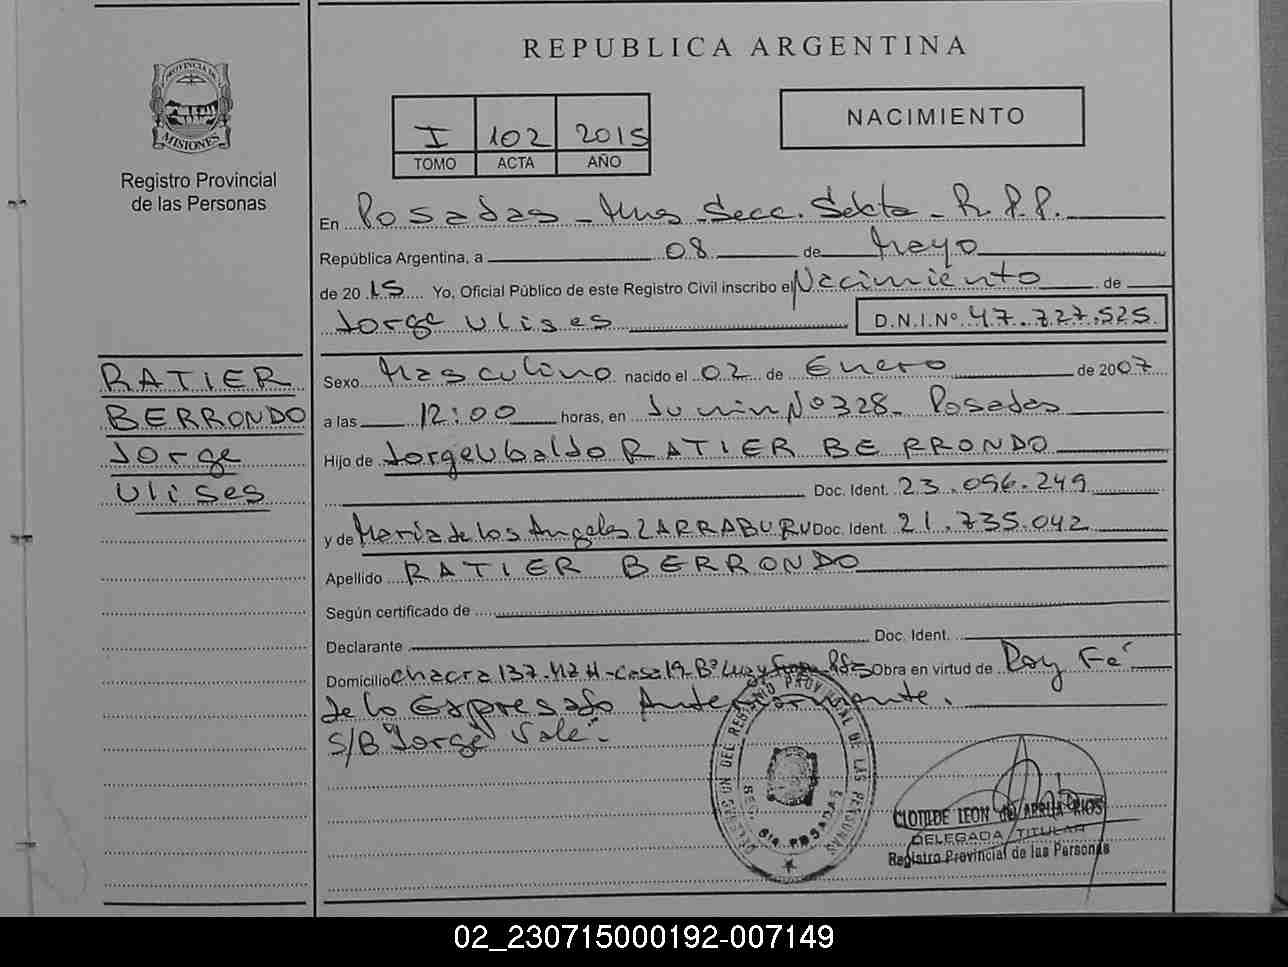 REPUBLICA ARGENTINA
PROVINCIA DE
MISIONES
Registro Provincial
de las Personas
I 102 2015
TOMO ACTA AÑO
NACIMIENTO
En Posadas - Mnes Secc. Sexta - R.P.P.
República Argentina, a 08 de Mayo
de 2015 Yo, Oficial Público de este Registro Civil inscribo el Nacimiento de
Jorge Ulises D.N.I.Nº 47.727.525
RATIER
BERRONDO
Jorge
Ulises
Sexo Masculino nacido el 02 de Enero de 2007
a las 12:00 horas, en Junin Nº 328 - Posadas
Hijo de Jorge Ubaldo RATIER BERRONDO
Doc. Ident. 23.096.249
y de María de los Angeles ZARRABURU Doc. Ident. 21.735.042
Apellido RATIER BERRONDO
Según certificado de
Declarante Doc. Ident.
Domicilio Chacra 137-MzH-Casa 19 Bº Luz y Pdas Obra en virtud de Doy Fé
de lo Expresado Anteriormente.
S/B "Jorge" Vale.-
DELEGACION DEL REGISTRO PROVINCIAL DE LAS PERSONAS
SECC. 6ta POSADAS
CLOTILDE LEON de RIOS
DELEGADA TITULAR
Registro Provincial de las Personas
02_230715000192-007149